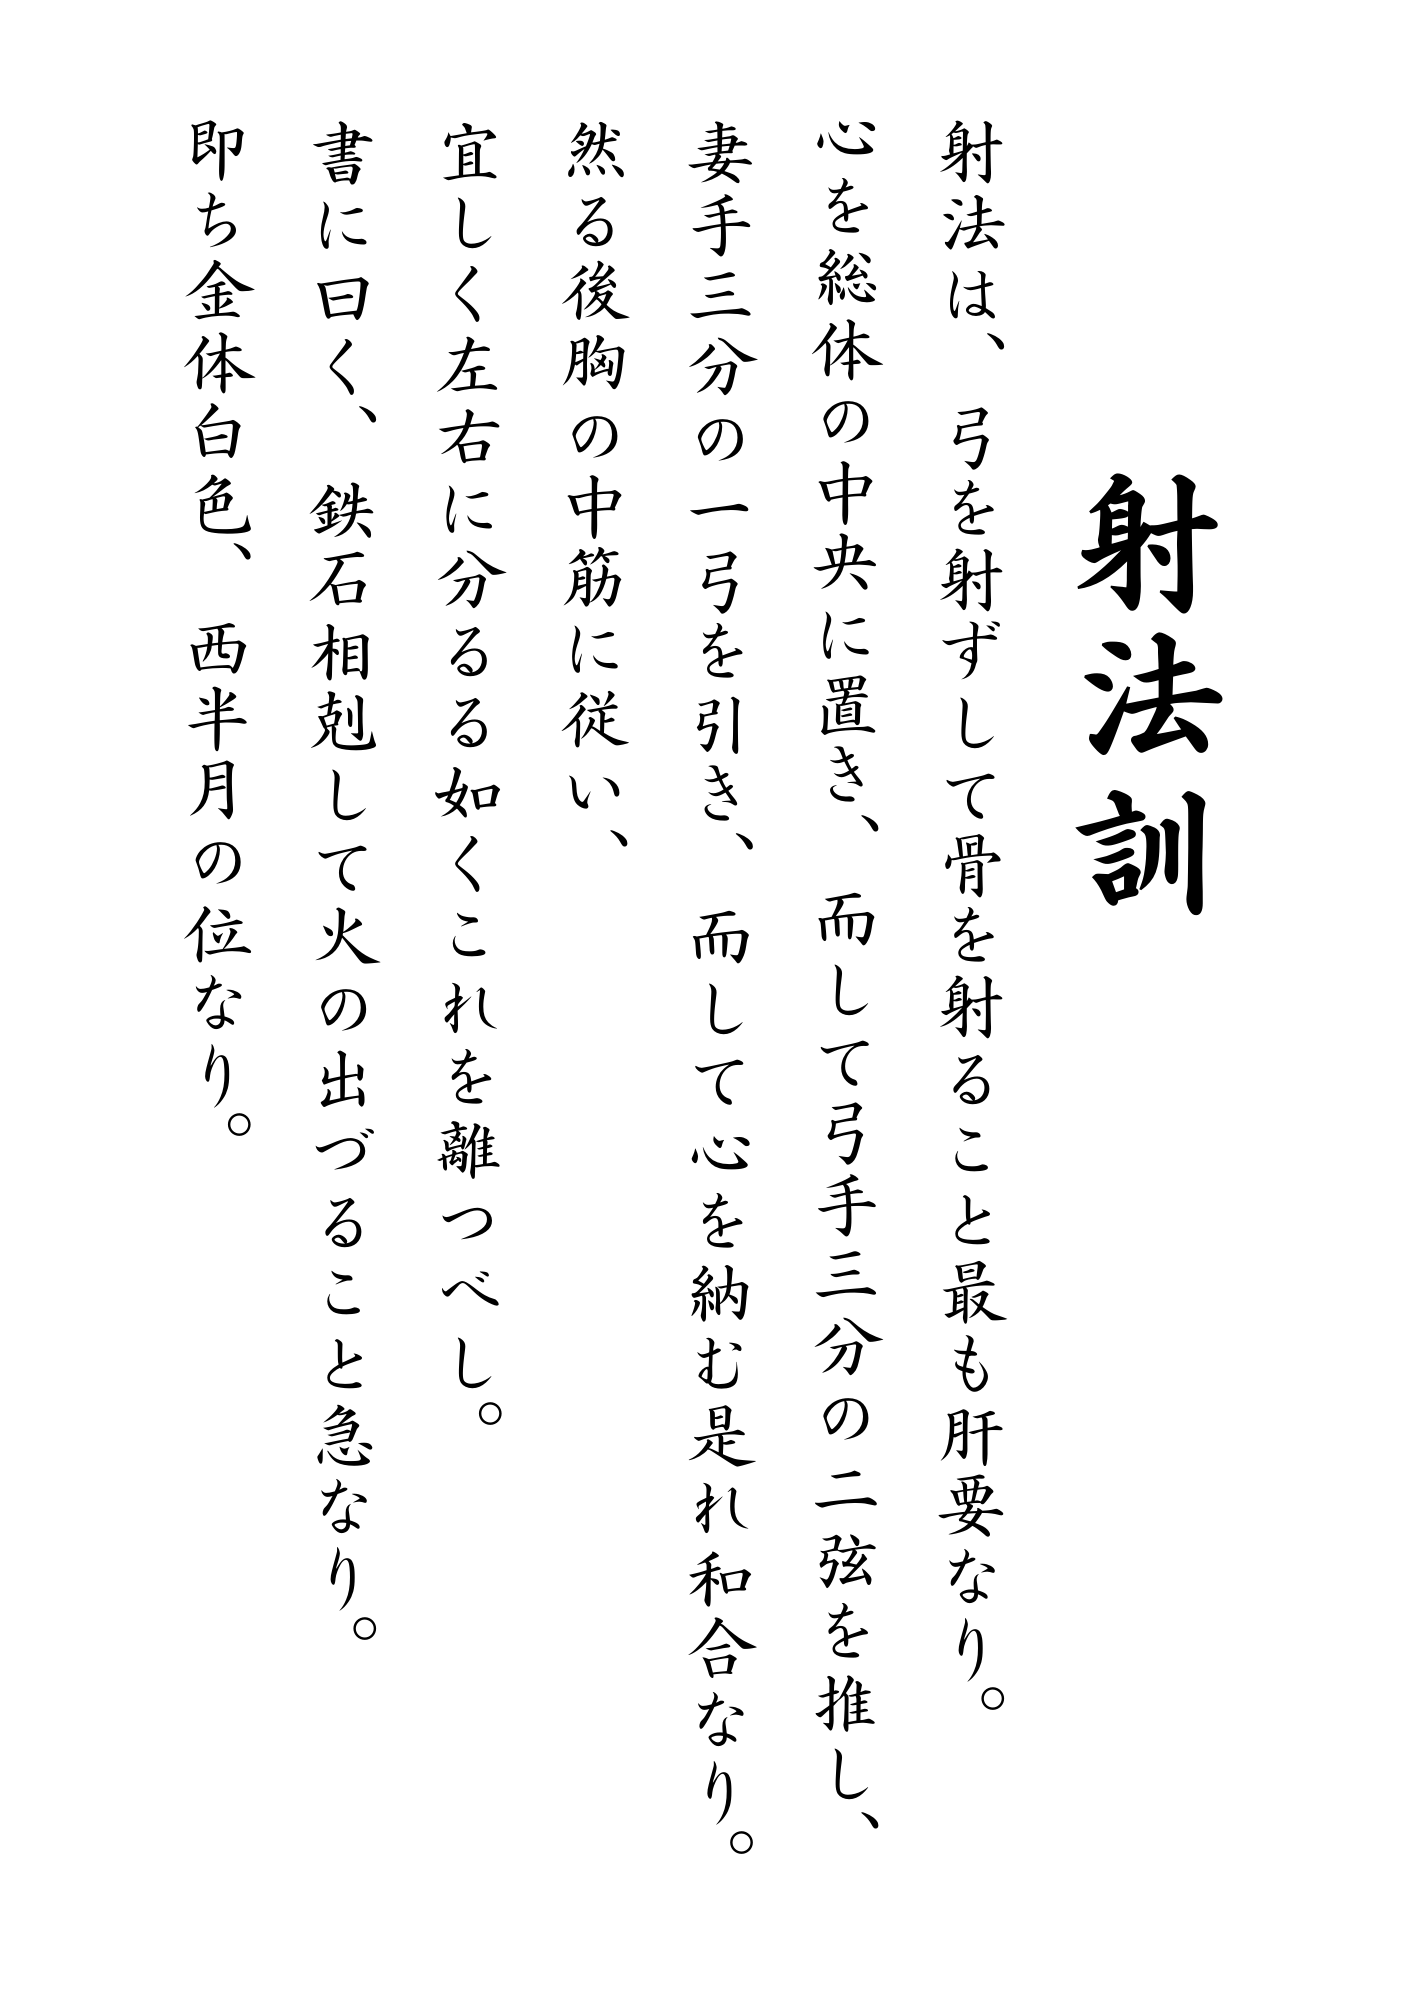 射法訓
射法は、弓を射ずして骨を射ること最も肝要なり。
心を総体の中央に置き、而して弓手三分の二弦を推し、
妻手三分の一弓を引き、而して心を納む是れ和合なり。
然る後胸の中筋に従い、
宜しく左右に分るる如くこれを離つべし。
書に曰く、鉄石相剋して火の出づること急なり。
即ち金体白色、西半月の位なり。